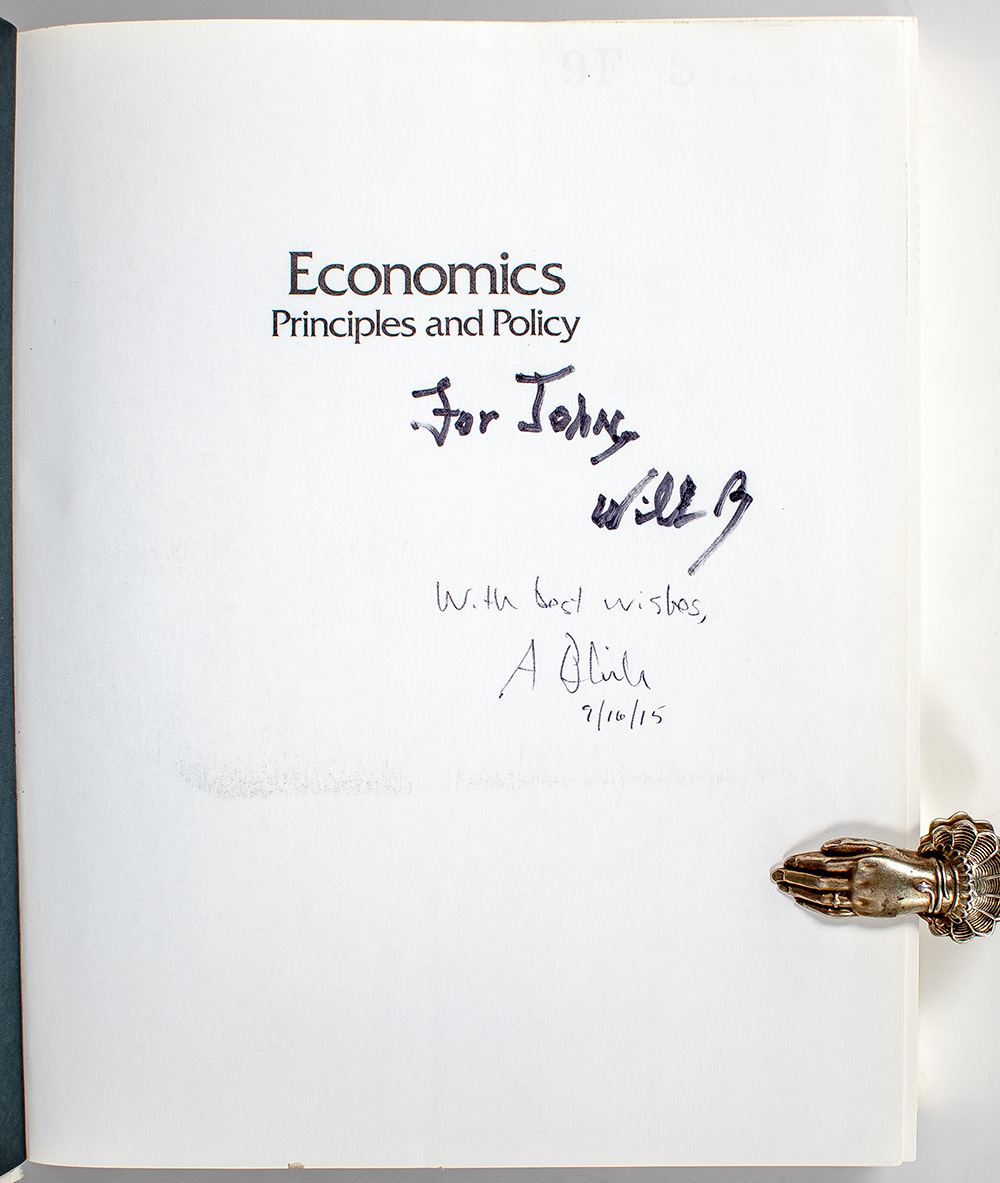 Economics
Principles and Policy
For John,
Will B
With best wishes,
A Blinder
9/16/15